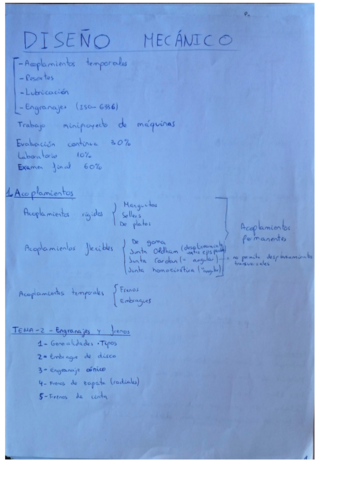 DISEÑO MECÁNICO
- Acoplamientos temporales
- Resortes
- Lubricación
- Engranajes
Trabajo miniproyecto de máquinas
Evaluación continua
Laboratorio 10%
Examen final 60%
1. Acoplamientos
Acoplamiento rígido
Manguitos
Sellers
De platos
Acoplamientos flexibles
De goma
Junta Oldham
Junta Cardan (- angular)
Junta homocinética
Acoplamientos permanentes
no permite desplazamientos
Acoplamientos temporales
Frenos
Embragues
TEMA-2 - Engranajes y frenos
1- Generalidades. Tipos
2- Embrague de disco
3- Engranaje cónico
4- Freno de zapata
5- Freno de cinta